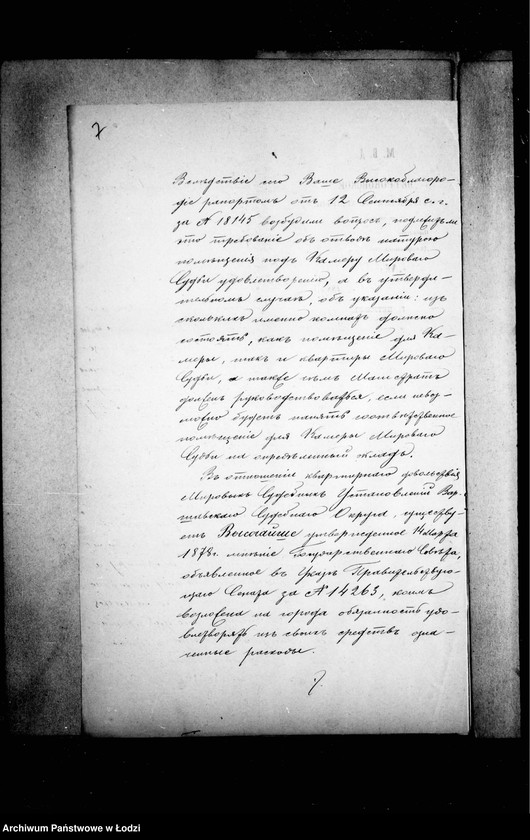 7
Вслѣдствіе сего Ваше Высокоблагоро-
діе рапортомъ отъ 12 Сентября с. г.
за № 18145 возбудили вопросъ, подлежитъ ли
это требованіе объ отводѣ натурою
помѣщенія подъ Камеру Мироваго
Судьи удовлетворенію, а въ утверди-
тельномъ случаѣ, объ указаніи: изъ
сколькихъ именно комнатъ должно
состоять, какъ помѣщеніе для Ка-
меры, такъ и квартиры Мироваго
Судьи, а также чѣмъ Магистратъ
долженъ руководствоваться, если невоз-
можно будетъ нанять соотвѣтственное
помѣщеніе для Камеры Мироваго
Судьи на опредѣленный окладъ.
Въ отношеніи квартирнаго довольствія
Мировыхъ Судебныхъ Установленій Вар-
шавскаго Судебнаго Округа, существу-
етъ Высочайше утвержденное 14 Марта
1878 г. мнѣніе Государственнаго Совѣта,
объявленное въ Указѣ Правительствую-
щаго Сената за № 14263, коимъ
возложена на города обязанность удо-
влетворять изъ своихъ средствъ озна-
ченные расходы.
Archiwum Państwowe w Łodzi